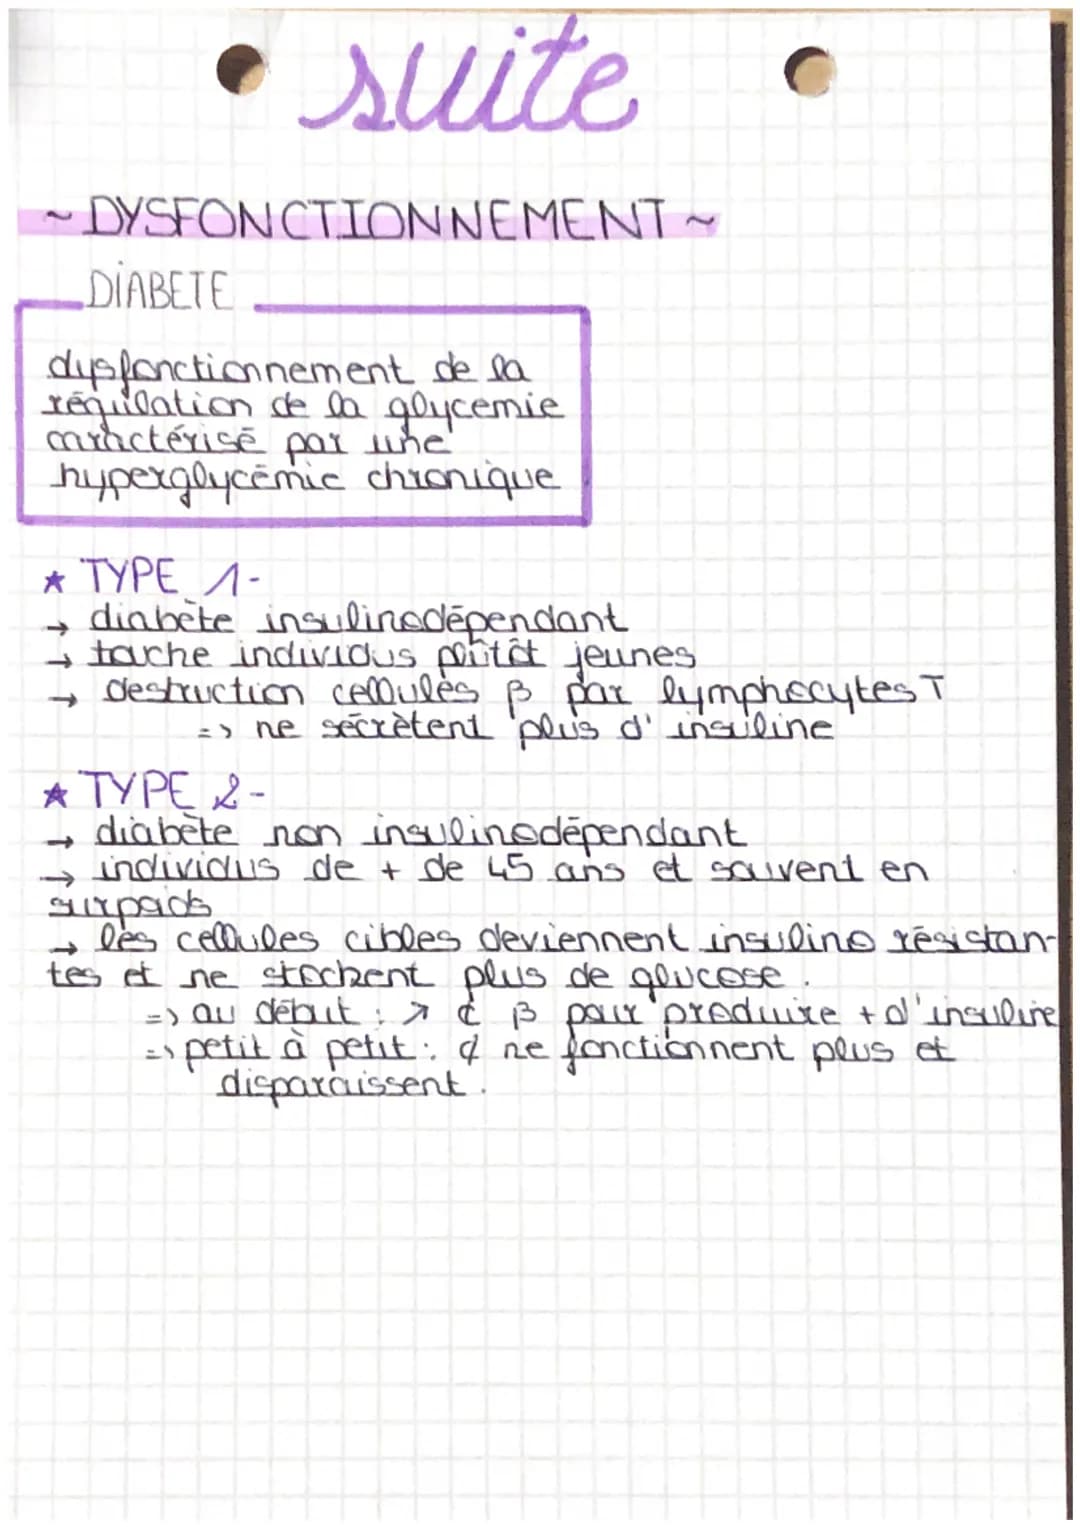 suite
~ DYSFONCTIONNEMENT ~
DIABETE
dysfonctionnement de la
régulation de la glycemie
caractérisé par une
hyperglycémie chronique
★ TYPE 1-
→ diabète insulinodépendant
→ touche individus plutôt jeunes
→ destruction cellules β par lymphocytes T
=> ne sécrètent plus d'insuline
★ TYPE 2-
→ diabète non insulinodépendant
→ individus de + de 45 ans et souvent en
surpoids
→ les cellules cibles deviennent insulino résistan-
tes et ne stockent plus de glucose.
=> au début : ↗ ȼ β pour produire + d'insuline
=> petit à petit : ȼ ne fonctionnent plus et
disparaissent.